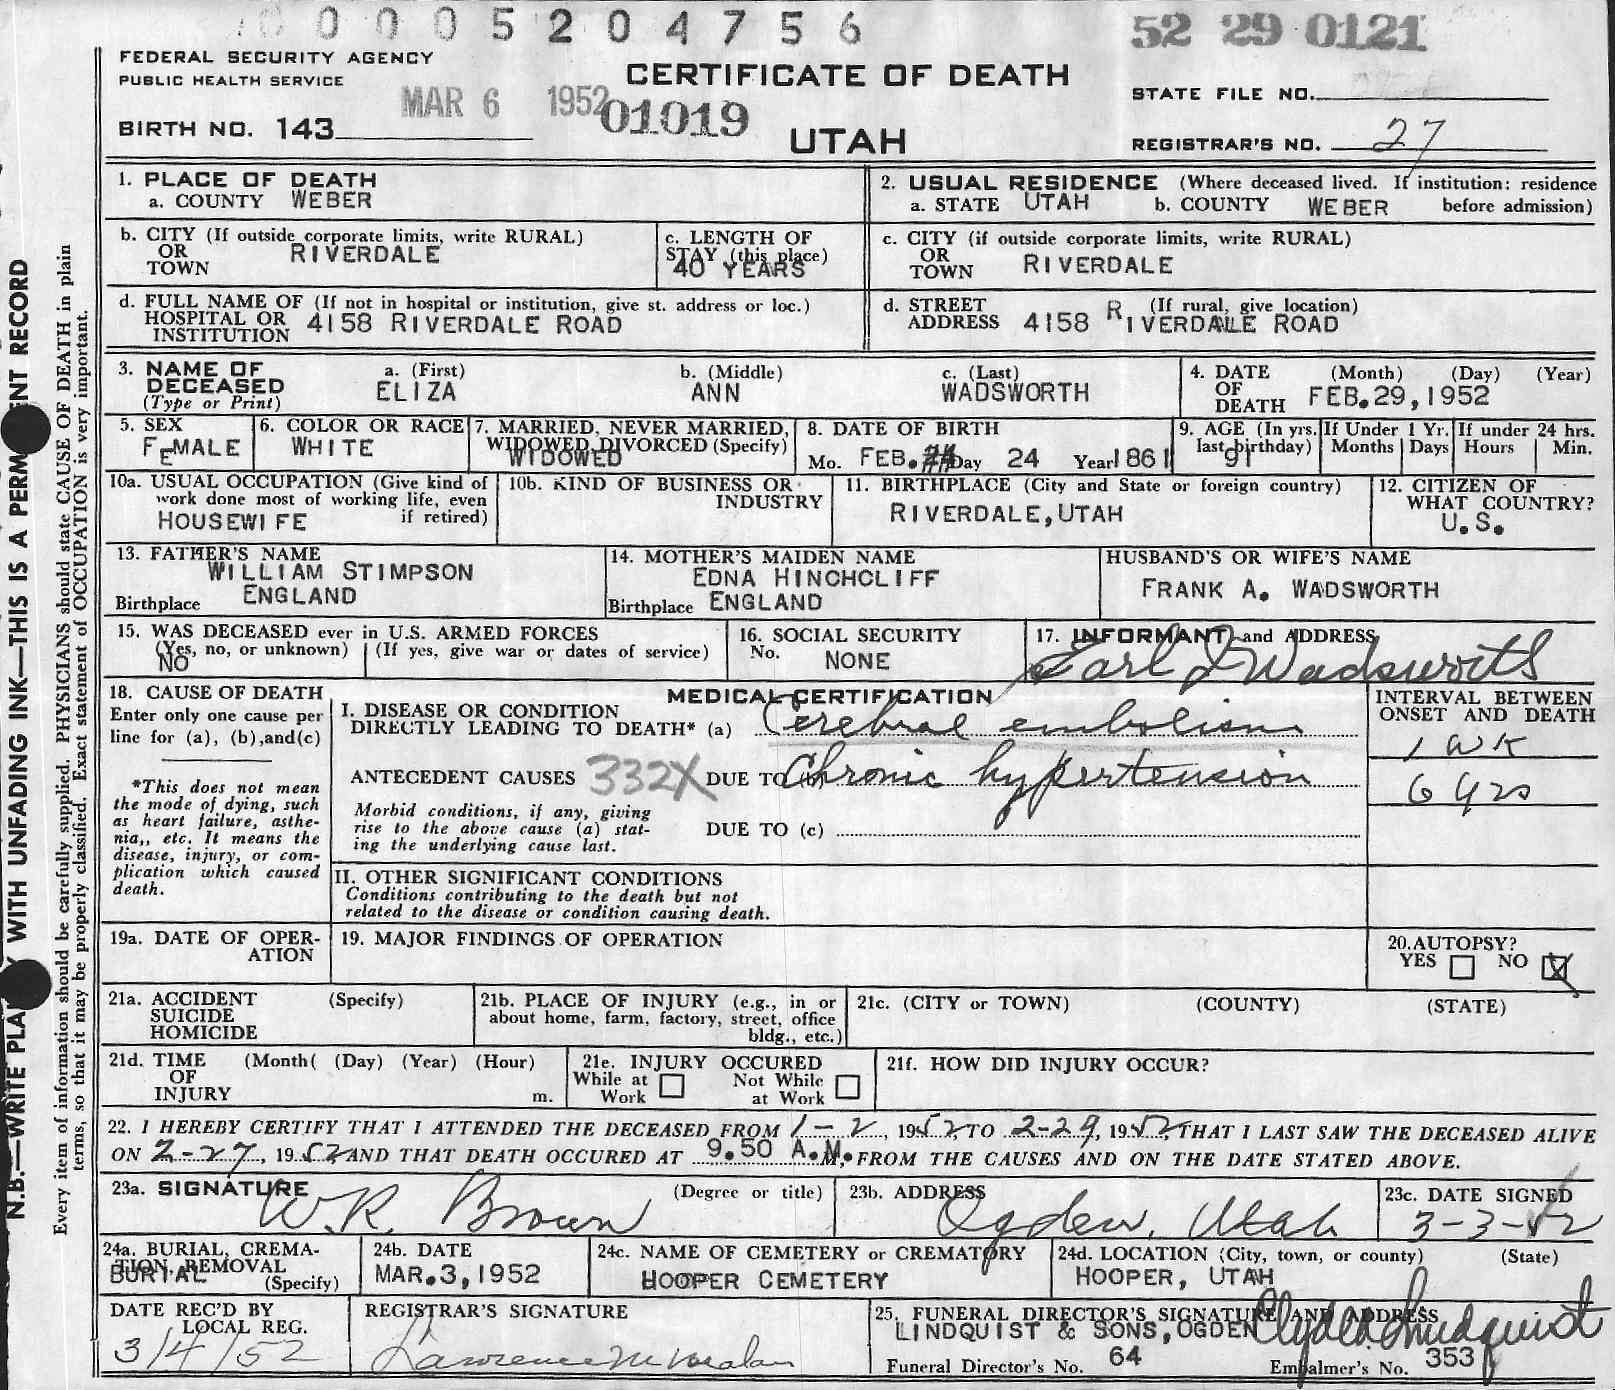 0 0 0 5 2 0 4 7 5 6
52 29 0121
FEDERAL SECURITY AGENCY
PUBLIC HEALTH SERVICE
CERTIFICATE OF DEATH
MAR 6 1952
01019
STATE FILE NO.
BIRTH NO. 143
UTAH
REGISTRAR'S NO. 27
1. PLACE OF DEATH
a. COUNTY WEBER
2. USUAL RESIDENCE (Where deceased lived. If institution: residence
a. STATE UTAH b. COUNTY WEBER before admission)
b. CITY (If outside corporate limits, write RURAL)
OR
TOWN
RIVERDALE
c. LENGTH OF
STAY (this place)
40 YEARS
c. CITY (if outside corporate limits, write RURAL)
OR
TOWN RIVERDALE
d. FULL NAME OF (If not in hospital or institution, give st. address or loc.)
HOSPITAL OR
INSTITUTION
4158 RIVERDALE ROAD
d. STREET (If rural, give location)
ADDRESS 4158 RIVERDALE ROAD
3. NAME OF
DECEASED
(Type or Print)
a. (First)
ELIZA
b. (Middle)
ANN
c. (Last)
WADSWORTH
4. DATE (Month) (Day) (Year)
OF
DEATH FEB.29,1952
5. SEX
FEMALE
6. COLOR OR RACE
WHITE
7. MARRIED, NEVER MARRIED,
WIDOWED, DIVORCED (Specify)
WIDOWED
8. DATE OF BIRTH
Mo. FEB. Day 24 Year 1861
9. AGE (In yrs.
last birthday)
91
If Under 1 Yr.
Months Days
If under 24 hrs.
Hours Min.
10a. USUAL OCCUPATION (Give kind of
work done most of working life, even
if retired)
HOUSEWIFE
10b. KIND OF BUSINESS OR
INDUSTRY
11. BIRTHPLACE (City and State or foreign country)
RIVERDALE,UTAH
12. CITIZEN OF
WHAT COUNTRY?
U.S.
13. FATHER'S NAME
WILLIAM STIMPSON
Birthplace ENGLAND
14. MOTHER'S MAIDEN NAME
EDNA HINCHCLIFF
Birthplace ENGLAND
HUSBAND'S OR WIFE'S NAME
FRANK A. WADSWORTH
15. WAS DECEASED ever in U.S. ARMED FORCES
(Yes, no, or unknown) (If yes, give war or dates of service)
NO
16. SOCIAL SECURITY
No. NONE
17. INFORMANT and ADDRESS
Earl J Wadsworth
18. CAUSE OF DEATH
Enter only one cause per
line for (a), (b),and(c)
*This does not mean
the mode of dying, such
as heart failure, asthe-
nia,, etc. It means the
disease, injury, or com-
plication which caused
death.
MEDICAL CERTIFICATION
I. DISEASE OR CONDITION
DIRECTLY LEADING TO DEATH* (a) Cerebral embolism
ANTECEDENT CAUSES 332X DUE TO Chronic hypertension
Morbid conditions, if any, giving
rise to the above cause (a) stat-
ing the underlying cause last.
DUE TO (c)
II. OTHER SIGNIFICANT CONDITIONS
Conditions contributing to the death but not
related to the disease or condition causing death.
INTERVAL BETWEEN
ONSET AND DEATH
1 wk
6 yrs
19a. DATE OF OPER-
ATION
19. MAJOR FINDINGS OF OPERATION
20.AUTOPSY?
YES NO
21a. ACCIDENT (Specify)
SUICIDE
HOMICIDE
21b. PLACE OF INJURY (e.g., in or
about home, farm, factory, street, office
bldg., etc.)
21c. (CITY or TOWN) (COUNTY) (STATE)
21d. TIME (Month( (Day) (Year) (Hour)
OF
INJURY m.
21e. INJURY OCCURED
While at Work Not While at Work
21f. HOW DID INJURY OCCUR?
22. I HEREBY CERTIFY THAT I ATTENDED THE DECEASED FROM 1-2, 1952, TO 2-29, 1952, THAT I LAST SAW THE DECEASED ALIVE
ON 2-27, 1952 AND THAT DEATH OCCURED AT 9.50 A.M. FROM THE CAUSES AND ON THE DATE STATED ABOVE.
23a. SIGNATURE (Degree or title)
W.R. Brown
23b. ADDRESS
Ogden, Utah
23c. DATE SIGNED
3-3-52
24a. BURIAL, CREMA-
TION, REMOVAL
(Specify)
BURIAL
24b. DATE
MAR.3,1952
24c. NAME OF CEMETERY or CREMATORY
HOOPER CEMETERY
24d. LOCATION (City, town, or county) (State)
HOOPER, UTAH
DATE REC'D BY
LOCAL REG.
3/4/52
REGISTRAR'S SIGNATURE
Lawrence
25. FUNERAL DIRECTOR'S SIGNATURE AND ADDRESS
LINDQUIST & SONS,OGDEN Clyde Lindquist
Funeral Director's No. 64 Embalmer's No. 353
N.B.—WRITE WITH UNFADING INK—THIS IS A RECORD
Every item of information should be carefully supplied. PHYSICIANS should state CAUSE OF DEATH in plain
terms, so that it may be properly classified. Exact statement of OCCUPATION is very important.